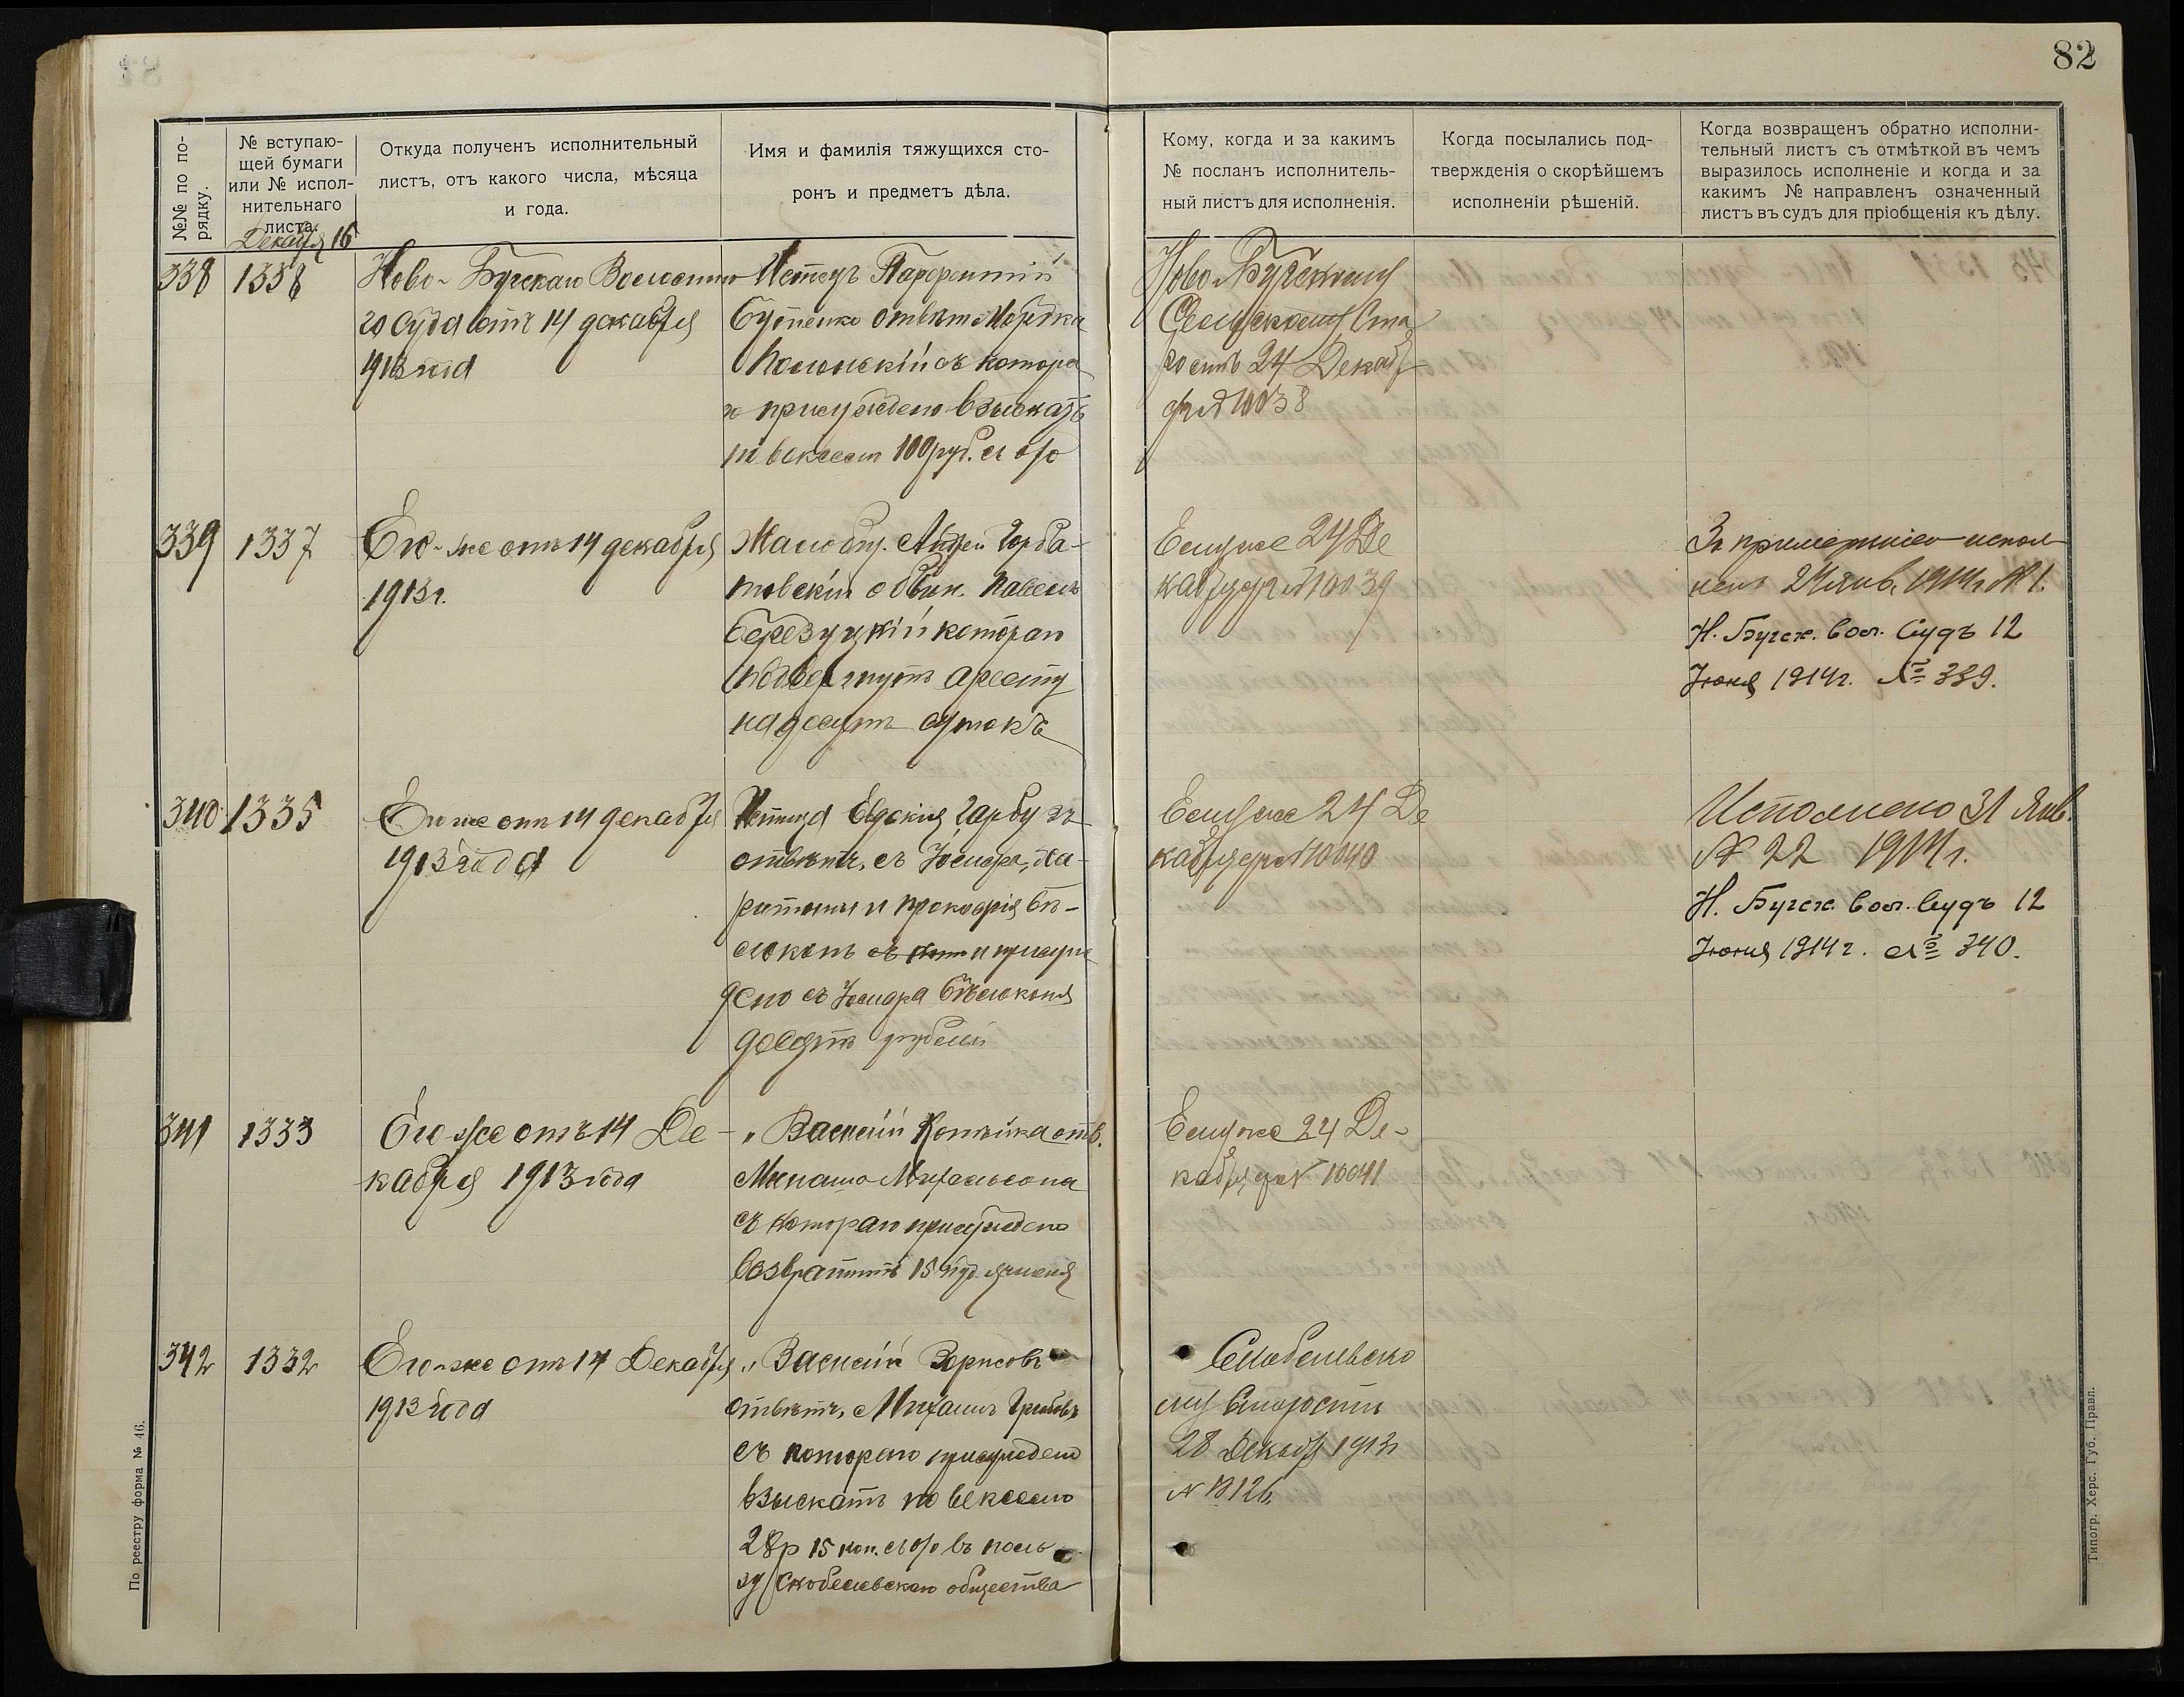 82
№№ по по-
рядку.
№ вступаю-
щей бумаги
или № испол-
нительнаго
листа.
Откуда полученъ исполнительный
листъ, отъ какого числа, мѣсяца
и года.
Имя и фамилія тяжущихся сто-
ронъ и предметъ дѣла.
Кому, когда и за какимъ
№ посланъ исполнитель-
ный листъ для исполненія.
Когда посылались под-
твержденія о скорѣйшемъ
исполненіи рѣшеній.
Когда возвращенъ обратно исполни-
тельный листъ съ отмѣткой въ чемъ
выразилось исполненіе и когда и за
какимъ № направленъ означенный
листъ въ судъ для пріобщенія къ дѣлу.
Декабря 16
338
1338
Ново-Бугскаго Волостно
го Суда отъ 14 декабря
1913 года
Истецъ Парфентій
отвѣт. Мордка
Полонскій съ котора
го присуждено взыскать
по векселю 100 руб. съ о/о
Ново-Бугскому
Сельскому Ста
ростѣ 24 Декаб
ря № 10038
339
1337
Его-же отъ 14 декабря
1913 г.
Жалобщ. Андрей Горба-
товскій обвин. Павелъ
Березуцкій котораго
подвергнуть аресту
на десять сутокъ
Ему же 24 Де
кабря № 10039
За примиреніемъ испол
нен. 24 янв. 1914 г. № 1.
Н. Бугск. Вол. Судъ 12
Іюня 1914 г. № 339.
340
1335
Его же отъ 14 декабря
1913 года
Истица Евдокія Гарбузъ
отвѣтч. съ Іосифа, Ха-
ритины и Прокофія Бѣ-
локонь съ присуж
дено съ Іосифа Бѣлоконя
десять рублей
Ему же 24 Де
кабря № 10040
Исполнено 31 Янв.
№ 22 1914 г.
Н. Бугск. Вол. Судъ 12
Іюня 1914 г. № 340.
341
1333
Его-же отъ 14 Де-
кабря 1913 года
„ Василій Копѣйка отв.
Михельсона
съ котораго присуждено
возвратить 15 пуд. ячменя
Ему же 24 Де-
кабря № 10041
342
1332
Его-же отъ 14 Декабря
1913 года
„ Василій Борисовъ
отвѣтч. Михаилъ Грибовъ
съ котораго присуждено
взыскать по векселю
28 р 15 коп. съ о/о въ поль
зу Скобелевскаго общества
Скобелевско
му Старостѣ
28 Декабр 1913 г
№ 10126
По реестру форма № 46.
Типогр. Херс. Губ. Правл.